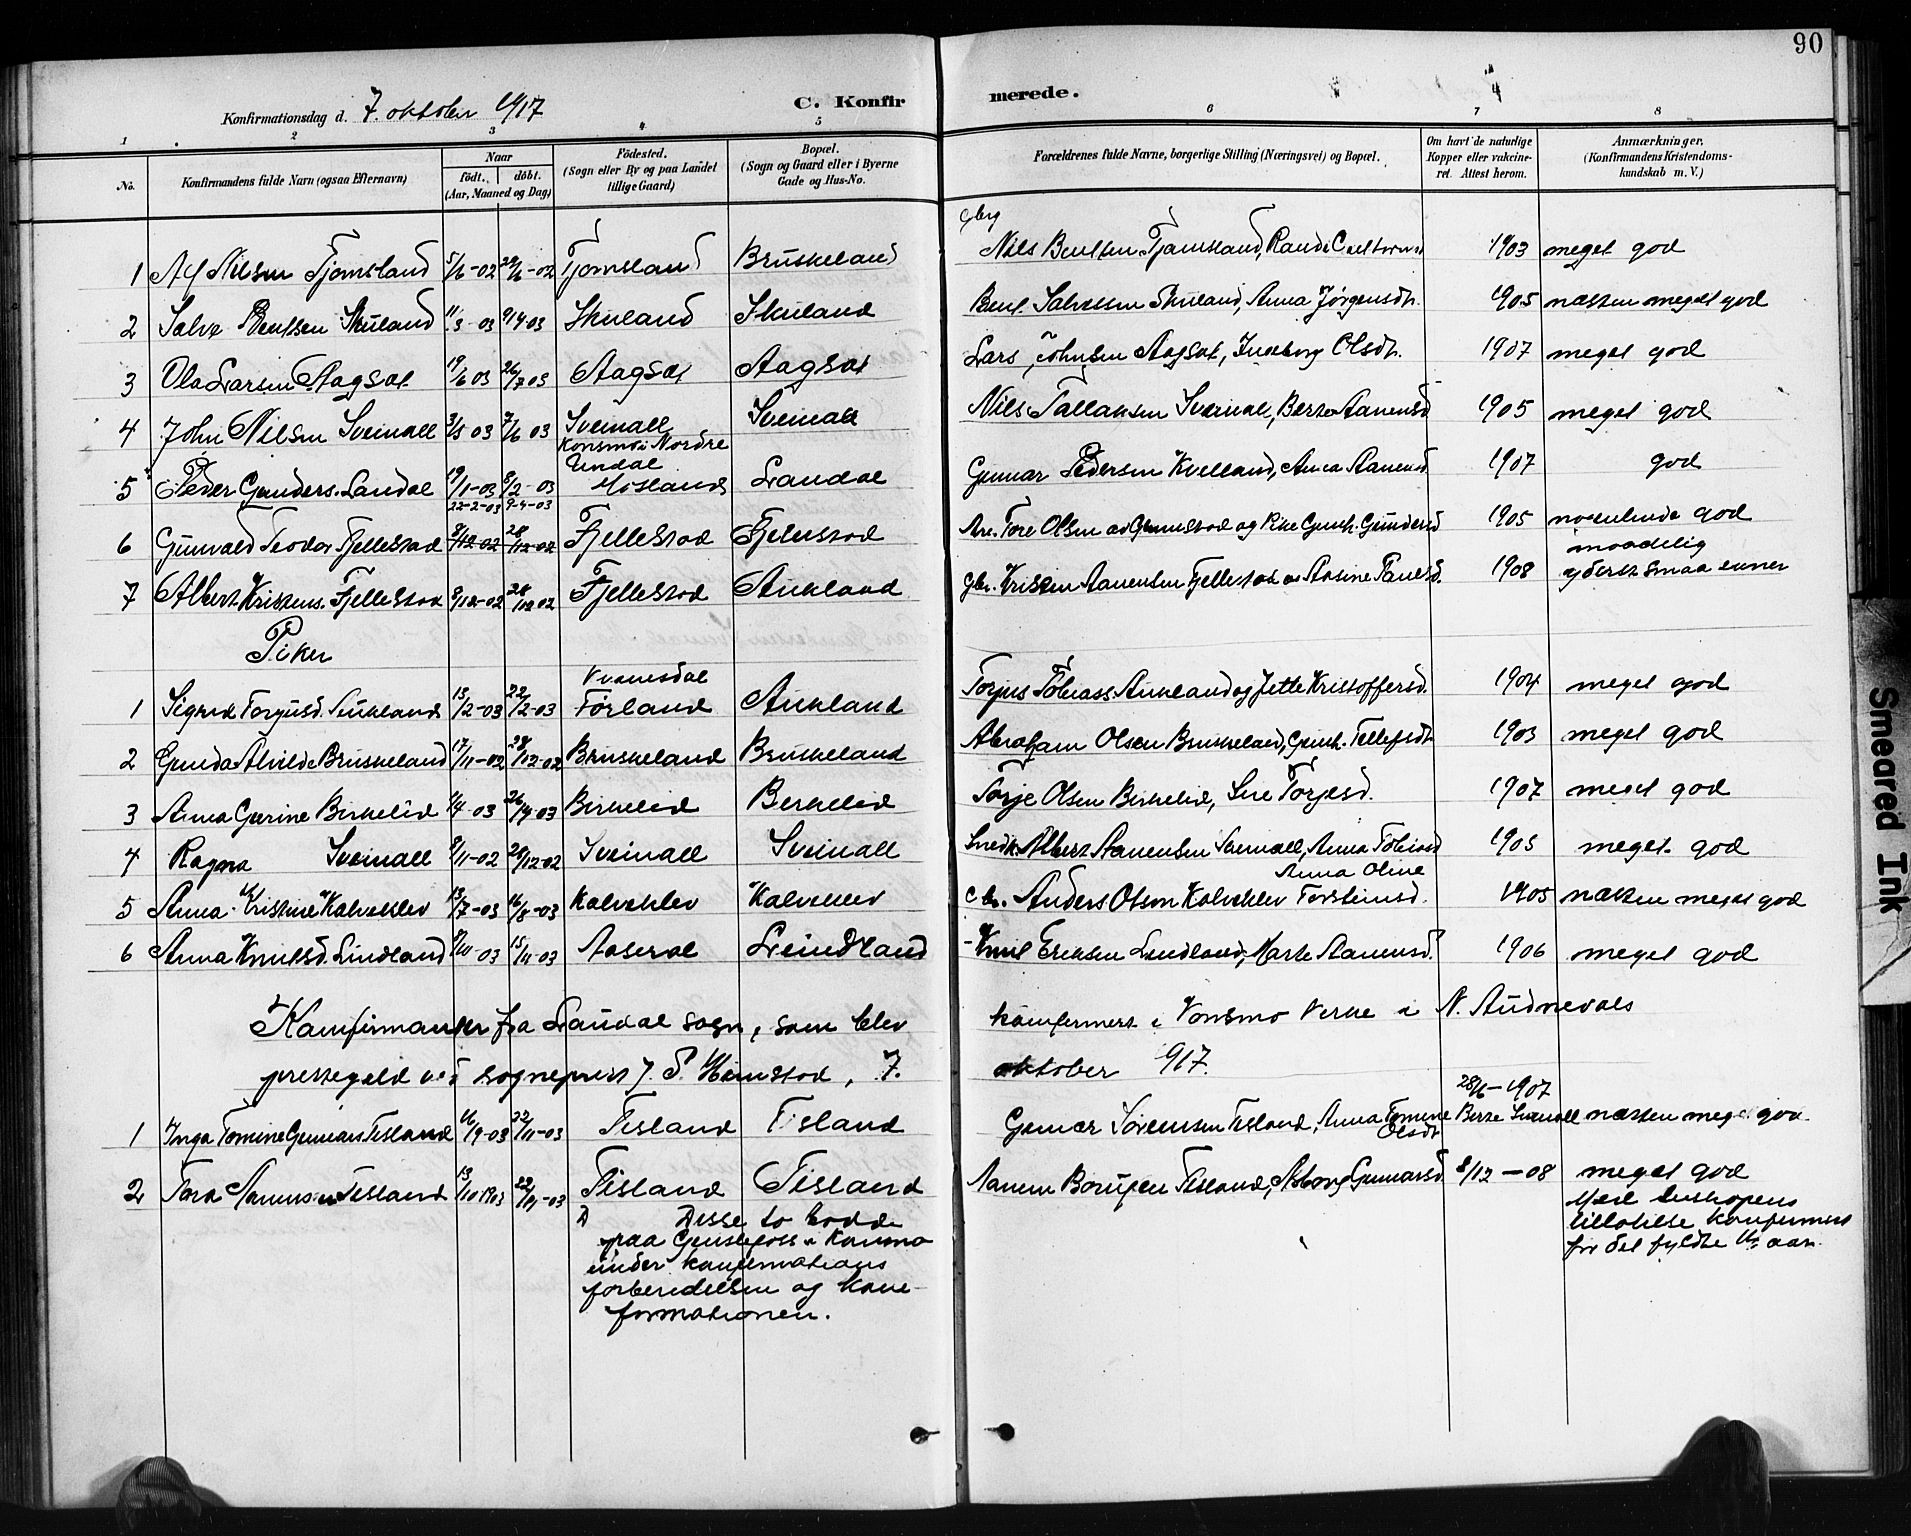 90
Konfirmationsdag d. 7. oktober 1917 C. Konfirmerede.
1 2 3 4 5 6 7 8
No. Konfirmandens fulde Navn (ogsaa Efternavn) Naar födt. döbt. (Aar, Maaned og Dag) Födested. (Sogn eller By og paa Landet tillige Gaard) Bopæl. (Sogn og Gaard eller i Byerne Gade og Hus-No. Forældrenes fulde Navne, borgerlige Stilling (Næringsvei) og Bopæl. Om havt de naturlige Kopper eller vakcineret. Attest herom. Anmærkninger. (Konfirmandens Kristendomskundskab m. V.)
1 Alf Nilsen Tjomsland 5/6-02 29/6-02 Tjomsland Bruskeland Gbrg Nils Bentsen Tjomsland, 1903 meget god
2 Salve Bentsen Skuland 11/3-03 9/4-03 Skuland Skuland Bent Salvessen Skuland, Anna Jørgensdt. 1905 næsten meget god
3 Ola Larsen Aagsal 19/6 03 26/7 03 Aagsal Aagsal Lars Johnsen Aagsal, Ingeborg Olsdt. 1907 meget god
4 John Nilsen Sveinall 3/5 03 7/6 03 Sveinall Sveinall Nils Tallaksen Sveinall, Berte Aanensd 1905 meget god
5 Peder Gunders. Landal 19/1-03 8/2-03 Konsmo i Nordre Undal Landal Gunnar Pedersen Kvelland, Anna Aanensd 1907 god
22-2-03 9-4-03
6 Gunvald Teodor Fjellestad 8/12-02 28/12-02 Fjellestad Fjellestad Tore Olsen 1905 god
7 Albert Kristens. Fjellestad 8/12-02 28/12 02 Fjellestad Aukland Gbr. Kristen Aanensen Fjellestad 1908 maadelig yderst smaa evner
Piker
1 Sigrid Torjusd. Aukland 13/2-03 22/2-03 Kvinesdal Førland Aukland Torjus Tobiass Aukland og Jette Kristoffersd. 1904 meget god
2 Gunda Alvilde Bruskeland 17/11-02 28/12-02 Bruskeland Bruskeland Abraham Olsen Bruskeland, Tellefsdt. 1903 meget god
3 Anna Gurine Birkelid 1/4-03 26/4-03 Birkelid Berkelid Torje Olsen Birkelid, Sire Torjesd. 1907 meget god
4 Ragna Sveinall 9/11-02 29/12-02 Sveinall Sveinall Snedk. Albert Aanensen Sveinall, Anna Tobiasd 1905 meget god
5 Anna Kristine Kalvehlev 13/7-03 16/8-03 Kalvehlev Kalvehlev Gbr. Anders Olsen Kalvehlev Anna Oline Torsteinsd. 1905 næsten meget god
6 Anna Knutsd. Lindland 9/10-03 15/11-03 Aaseral Leindland Knut Eriksen Lindland, Marte Aanensd. 1906 meget god
Konfirmanter fra Laudal sogn, som blev konfirmert i Konsmo kirke i N. Audnedals
prestegjeld ved sogneprest J. S. Heimstad, 7. oktober 917.
1 Inga Tomine Gunnars Tisland 16/9-03 22/11-03 Tisland Tisland Gunnar Sørensen Tisland, Anna Tomine Olsdt 28/6-1907 Berte Sveinall næsten meget god.
2 Tora Aanensen Tisland 13/10 1903 22/11-03 Tisland Tisland Aanen Borufsen Tisland, Asborg Gunnarsd 8/12-08 meget god
Med biskopens
tilladelse konfirmert
før det fyldte 14 aar.
Disse to bodde
paa Gusefoss i Konsmo
under konfirmations
forberedelsen og kon-
firmationen.
Smeared Ink